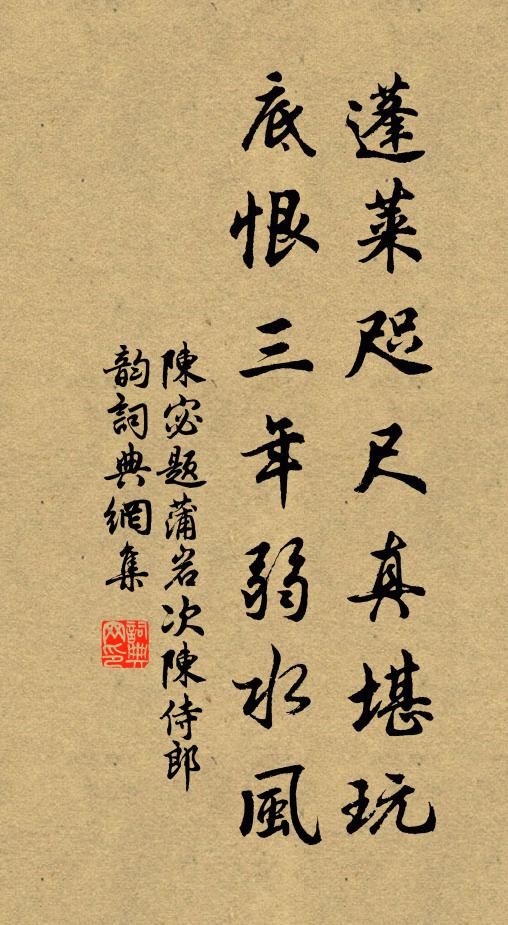 蓬萊咫尺真堪玩
底恨三年弱水風
陳宓題蒲岩次陳侍郎
韵詞典網集
詞典網印